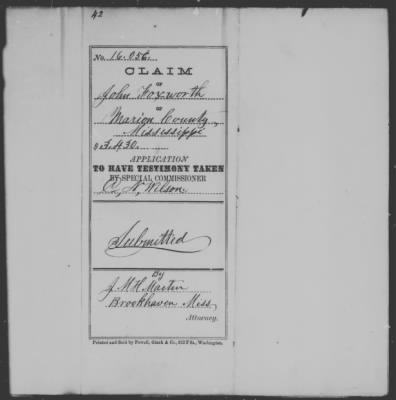 42
No. 16.056.
CLAIM
OF
John Foxworth
OF
Marion County,
Mississippi
$3.430.
APPLICATION
TO HAVE TESTIMONY TAKEN
BY SPECIAL COMMISSIONER
C. N. Wilson.
Submitted
By
J. M H. Martin
Brookhaven Miss
Attorney.
Printed and Sold by Powell, Ginck & Co., 632 F St., Washington.